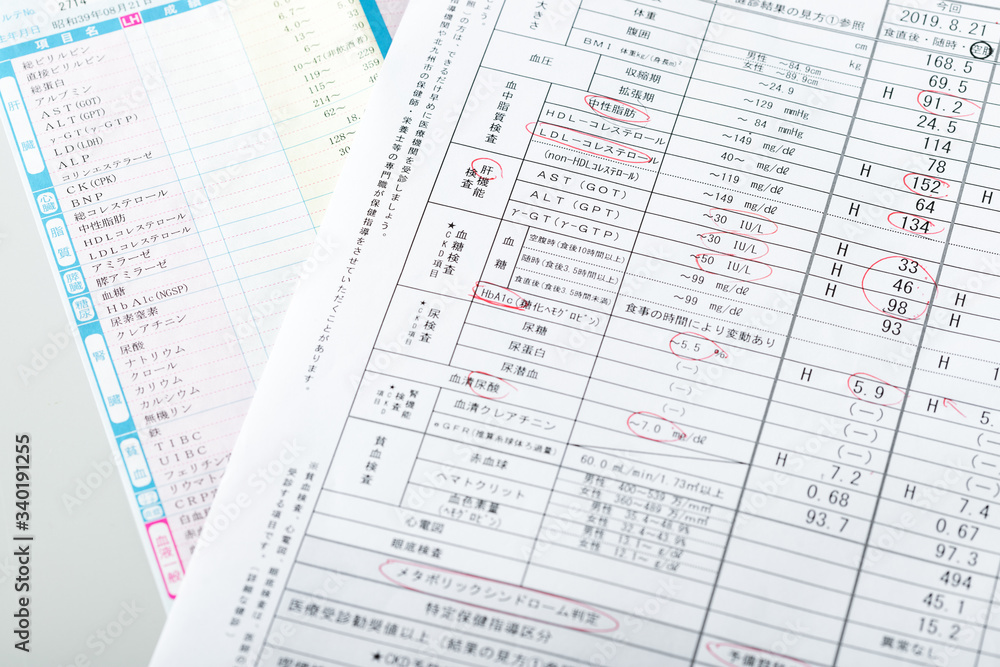 2714
昭和39年08月21日
項目名 LH 成績
総ビリルビン
直接ビリルビン
総蛋白
アルブミン
AST(GOT)
ALT(GPT)
γ-GT(γ-GTP)
LD(LDH)
ALP
コリンエステラーゼ
CK(CPK)
BNP
総コレステロール
中性脂肪
HDLコレステロール
LDLコレステロール
アミラーゼ
膵アミラーゼ
血糖
HbA1c(NGSP)
尿素窒素
クレアチニン
尿酸
ナトリウム
クロール
カリウム
カルシウム
無機リン
鉄
TIBC
UIBC
フェリチン
リウマト
CRP
白血
赤血
肝臓
心臓
脂質
膵臓
糖尿
腎臓
貧血
血液一般
の方は、できるだけ早めに医療機関を受診しましょう。
機関や北九州市の保健師・栄養士等の専門職が保健指導をさせていただくことがあります。
健診結果の見方①参照
今回
2019.8.21
食直後・随時・空腹
大きさ
体重 kg 168.5
腹囲 男性 ~84.9cm 女性 ~89.9cm cm 69.5
BMI 体重kg/(身長m)² ~24.9 H 91.2
24.5
血圧 収縮期 ~129 mmHg 114
拡張期 ~84 mmHg 78
血中脂質検査 中性脂肪 ~149 mg/dℓ H 152
HDL-コレステロール 40~ mg/dℓ 64
LDL-コレステロール ~119 mg/dℓ H 134
(non-HDLコレステロール) ~149 mg/dℓ
肝機能検査 AST(GOT) ~30 IU/L H 33
ALT(GPT) ~30 IU/L H 46
γ-GT(γ-GTP) ~50 IU/L H 98
★血糖検査 CKD項目 血糖 空腹時(食後10時間以上) ~99 mg/dℓ 93
随時(食後3.5時間以上) ~99 mg/dℓ
食直後(食後3.5時間未満) 食事の時間により変動あり
HbA1c(糖化ヘモグロビン) ~5.5 % H 5.9 H 5.
★尿検査 CKD項目 尿糖 (-) (-)
尿蛋白 (-) (-)
尿潜血 (-) (-)
血清尿酸 ~7.0 mg/dℓ H 7.2 H 7.4
★腎機能検査 CKD項目 血清クレアチニン 0.68 0.67
eGFR(推算糸球体ろ過量) 60.0 mL/min/1.73㎡以上 93.7 97.3
貧血検査 赤血球 男性 400~539 万/㎣ 女性 360~489 万/㎣ 494
ヘマトクリット 45.1
血色素量(ヘモグロビン) 15.2
心電図 異常なし
眼底検査
メタボリックシンドローム判定
特定保健指導区分
医療受診勧奨値以上(結果の見方①参
※貧血検査、心電図、眼底検査は、医
受診する項目です。(詳細な健診)
Adobe Stock | #340191255